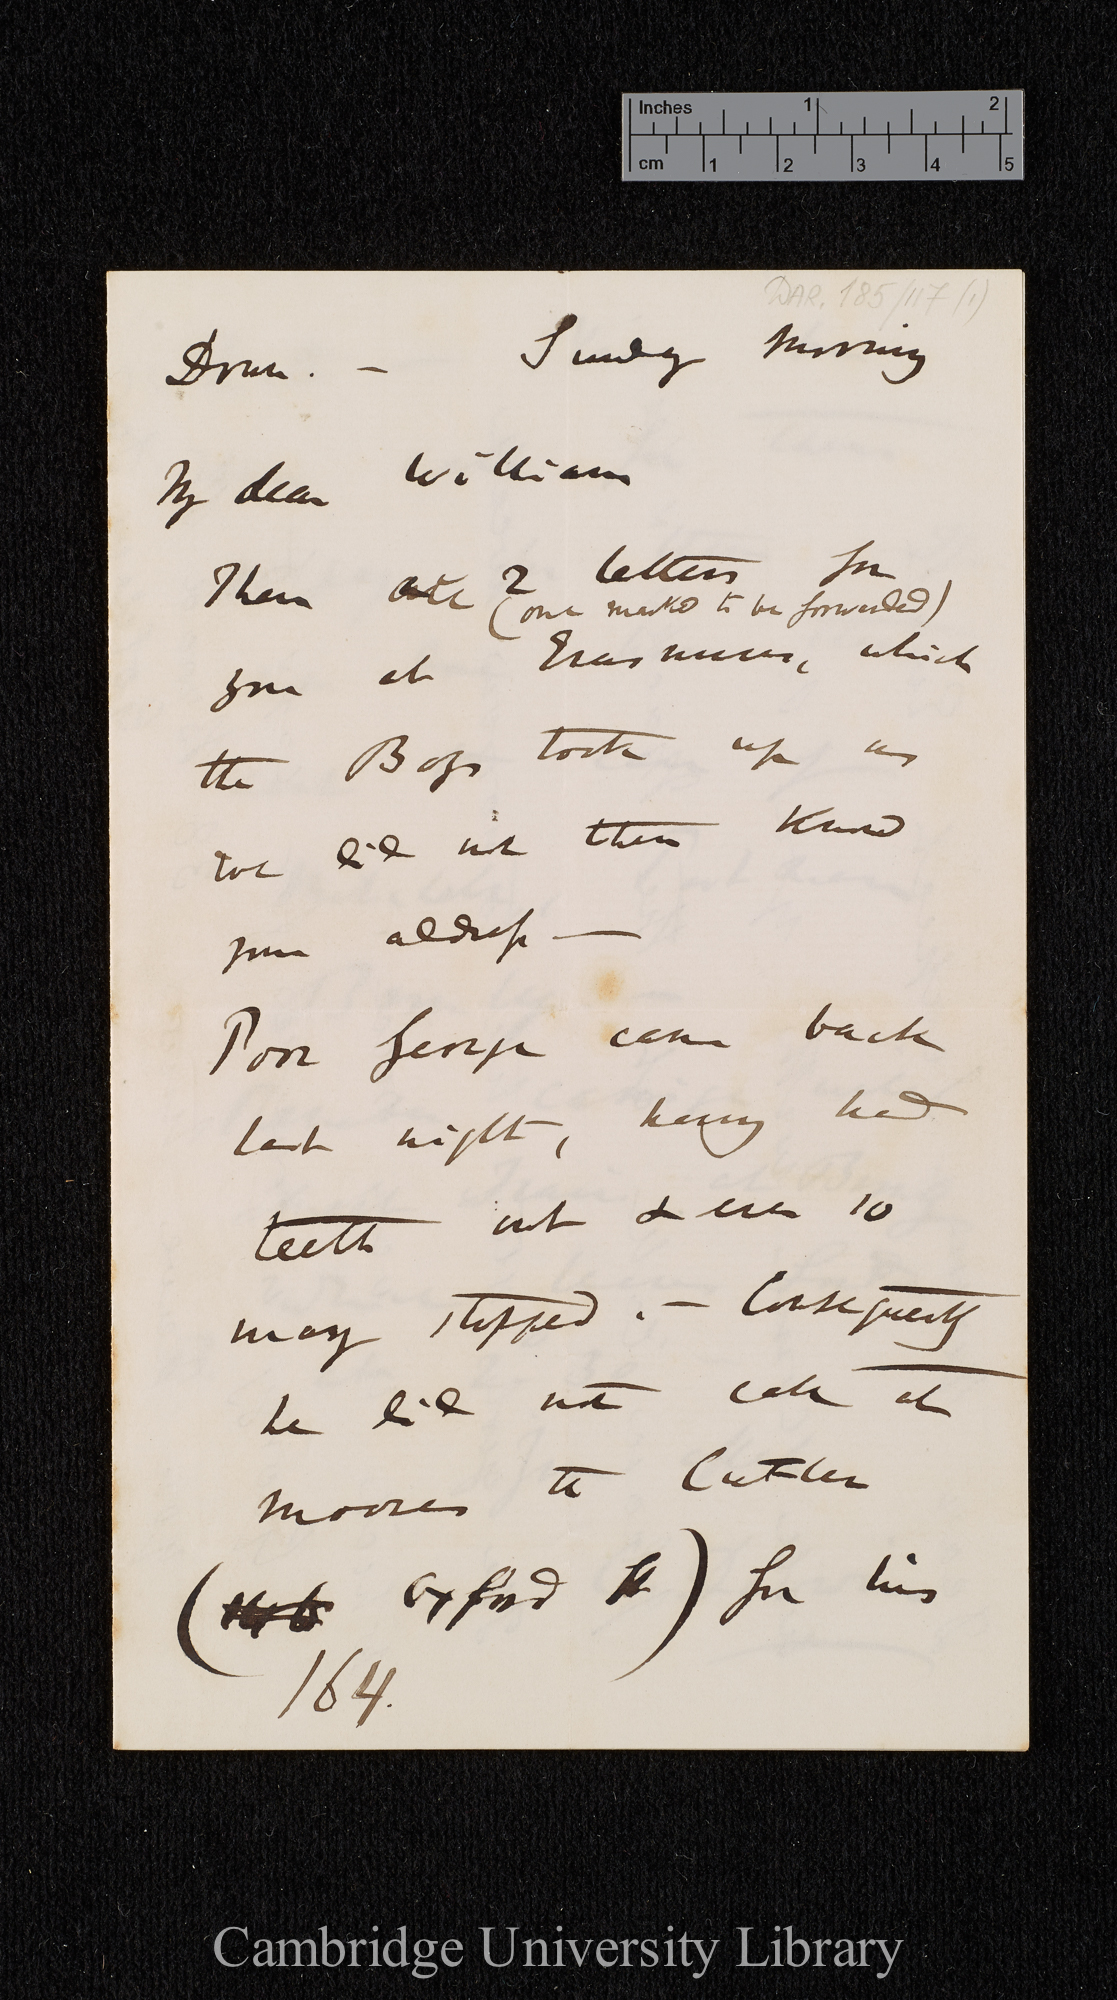 Inches 1 2
cm 1 2 3 4 5
DAR. 185/117 (1)
Down. — Sunday Morning
My dear William
There are 2 letters for
(one marked to be forwarded)
you at Erasmus, which
the Boys took up as
we did not then know
your address —
Poor George came back
last night, having had
teeth out & even 10
may stopped. — Consequently
he did not call at
Moores to Cutler
( Oxford St ) for his
164.
Cambridge University Library